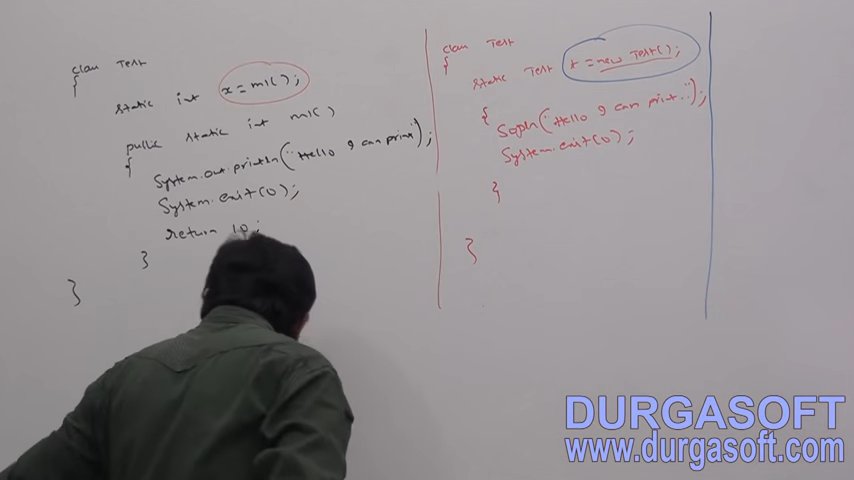 class Test
{
static int x=m1();
public static int m1()
{
System.out.println("Hello I can print");
System.exit(0);
return 10;
}
}
class Test
{
static Test t=new Test();
{
Sopln("Hello I can print..");
System.exit(0);
}
}
DURGASOFT
www.durgasoft.com